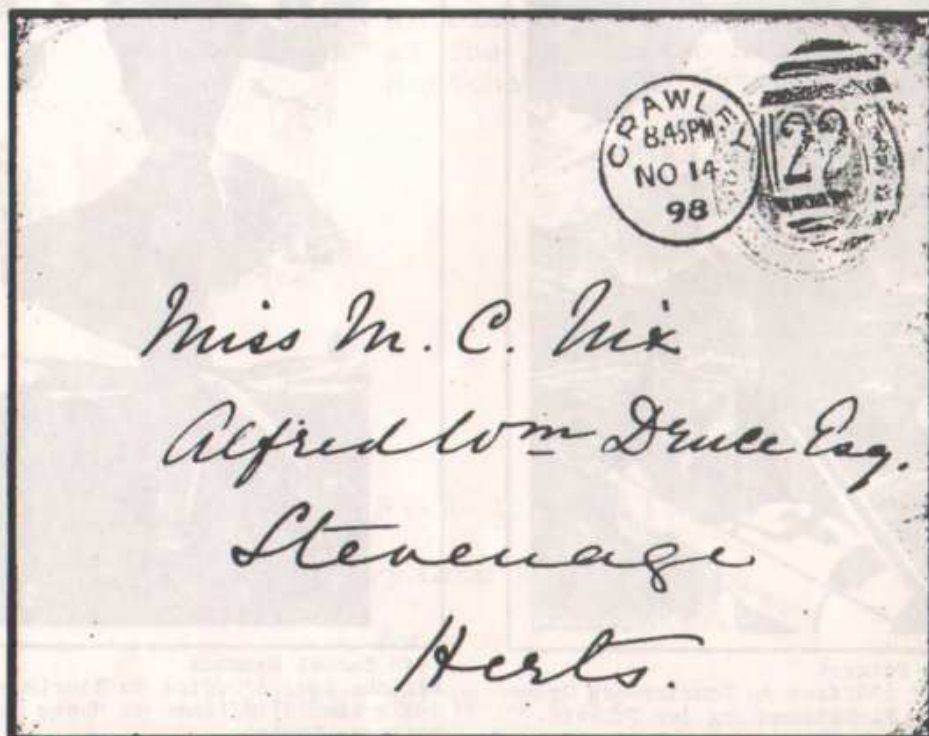 CRAWLEY
8.45PM
NO 14
98
22
Miss M. C. Nix
Alfred Wm Druce Esq.
Stevenage
Herts.